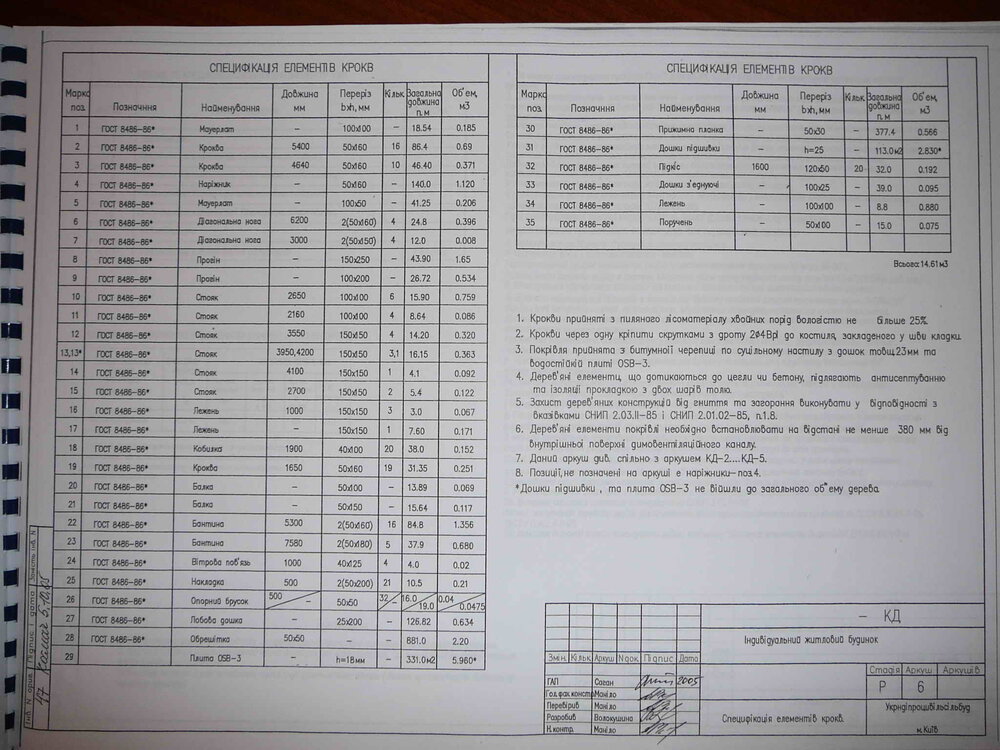 СПЕЦИФІКАЦІЯ ЕЛЕМЕНТІВ КРОКВ
Марка поз. Позначння Найменування Довжина мм Переріз bxh, мм Кільк. Загальна довжина п.м Об'ем, м3
1 ГОСТ 8486-86* Мауерлат – 100x100 – 18.54 0.185
2 ГОСТ 8486-86* Кроква 5400 50x160 16 86.4 0.69
3 ГОСТ 8486-86* Кроква 4640 50x160 10 46.40 0.371
4 ГОСТ 8486-86* Наріжник – 50x160 – 140.0 1.120
5 ГОСТ 8486-86* Мауерлат – 100x50 – 41.25 0.206
6 ГОСТ 8486-86* Діагональна нога 6200 2(50x160) 4 24.8 0.396
7 ГОСТ 8486-86* Діагональна нога 3000 2(50x160) 4 12.0 0.008
8 ГОСТ 8486-86* Прогін – 150x250 – 43.90 1.65
9 ГОСТ 8486-86* Прогін – 100x200 – 26.72 0.534
10 ГОСТ 8486-86* Стояк 2650 100x100 6 15.90 0.759
11 ГОСТ 8486-86* Стояк 2160 100x100 4 8.64 0.086
12 ГОСТ 8486-86* Стояк 3550 150x150 4 14.20 0.320
13,13* ГОСТ 8486-86* Стояк 3950,4200 150x150 3,1 16.15 0.363
14 ГОСТ 8486-86* Стояк 4100 150x150 1 4.1 0.092
15 ГОСТ 8486-86* Стояк 2700 150x150 2 5.4 0.122
16 ГОСТ 8486-86* Лежень 1000 150x150 3 3.0 0.067
17 ГОСТ 8486-86* Лежень – 150x150 1 7.60 0.171
18 ГОСТ 8486-86* Кобилка 1900 40x100 20 38.0 0.152
19 ГОСТ 8486-86* Кроква 1650 50x160 19 31.35 0.251
20 ГОСТ 8486-86* Балка – 50x100 – 13.89 0.069
21 ГОСТ 8486-86* Балка – 50x150 – 15.64 0.117
22 ГОСТ 8486-86* Бантина 5300 2(50x160) 16 84.8 1.356
23 ГОСТ 8486-86* Бантина 7580 2(50x180) 5 37.9 0.680
24 ГОСТ 8486-86* Вітрова пов'язь 1000 40x125 4 4.0 0.02
25 ГОСТ 8486-86* Накладка 500 2(50x200) 21 10.5 0.21
26 ГОСТ 8486-86* Опорний брусок 500/– 50x50 32/– 16.0/19.0 0.04/0.0475
27 ГОСТ 8486-86* Лобова дошка – 25x200 – 126.82 0.634
28 ГОСТ 8486-86* Обрешітка 50x50 – – 881.0 2.20
29 Плита OSB-3 – h=18мм – 331.0м2 5.960*
СПЕЦИФІКАЦІЯ ЕЛЕМЕНТІВ КРОКВ
Марка поз. Позначння Найменування Довжина мм Переріз bxh, мм Кільк. Загальна довжина п.м Об'ем, м3
30 ГОСТ 8486-86* Прижимна планка – 50x30 – 377.4 0.566
31 ГОСТ 8486-86* Дошки підшивки – h=25 – 113.0м2 2.830*
32 ГОСТ 8486-86* Підкіс 1600 120x50 20 32.0 0.192
33 ГОСТ 8486-86* Дошки з'еднуючі – 100x25 – 39.0 0.095
34 ГОСТ 8486-86* Лежень – 100x100 – 8.8 0.880
35 ГОСТ 8486-86* Поручень – 50x100 – 15.0 0.075
Всього: 14.61 м3
1. Крокви прийняті з пиляного лісоматеріалу хвойних порід вологістю не більше 25%.
2. Крокви через одну кріпити скрутками з дроту 2Ø4ВрІ до костиля, закладеного у шви кладки.
3. Покрівля прийнята з битумної черепиці по суцільному настилу з дошок товщ.23мм та
водостійкій плиті OSB-3.
4. Дерев'яні елементи, що дотикаються до цегли чи бетону, підлягають антисептуванню
та ізоляції прокладкою з двох шарів толю.
5. Захист дерев'яних конструкцій від гниття та загорання виконувати у відповідності з
вказівками СНИП 2.03.11-85 і СНИП 2.01.02-85, п.1.8.
6. Дерев'яні елементи покрівлі необхідно встановлювати на відстані не менше 380 мм від
внутрішньої поверхні димовентіляційного каналу.
7. Даний аркуш див. спільно з аркушем КД-2....КД-5.
8. Позиції, не позначені на аркуші є наріжники-поз.4.
*Дошки підшивки , та плита OSB-3 не війшли до загального об'ему дерева.
– КД
Індивідуальний житловий будинок
Змін. Кільк. Аркуш Nдок. Підпис Дата
Стадія Аркуш Аркушів
Р 6
ГАП Саган 2005
Гол.фах.констр. Маніло
Перевірив Маніло
Розробив Волокушина
Н.контр. Маніло
Специфікація елементів крокв.
Укрндіпроцивільсільбуд
м.Київ
Інв. N ориг. Підпис і дата Замість інв. N
47 5.10.05